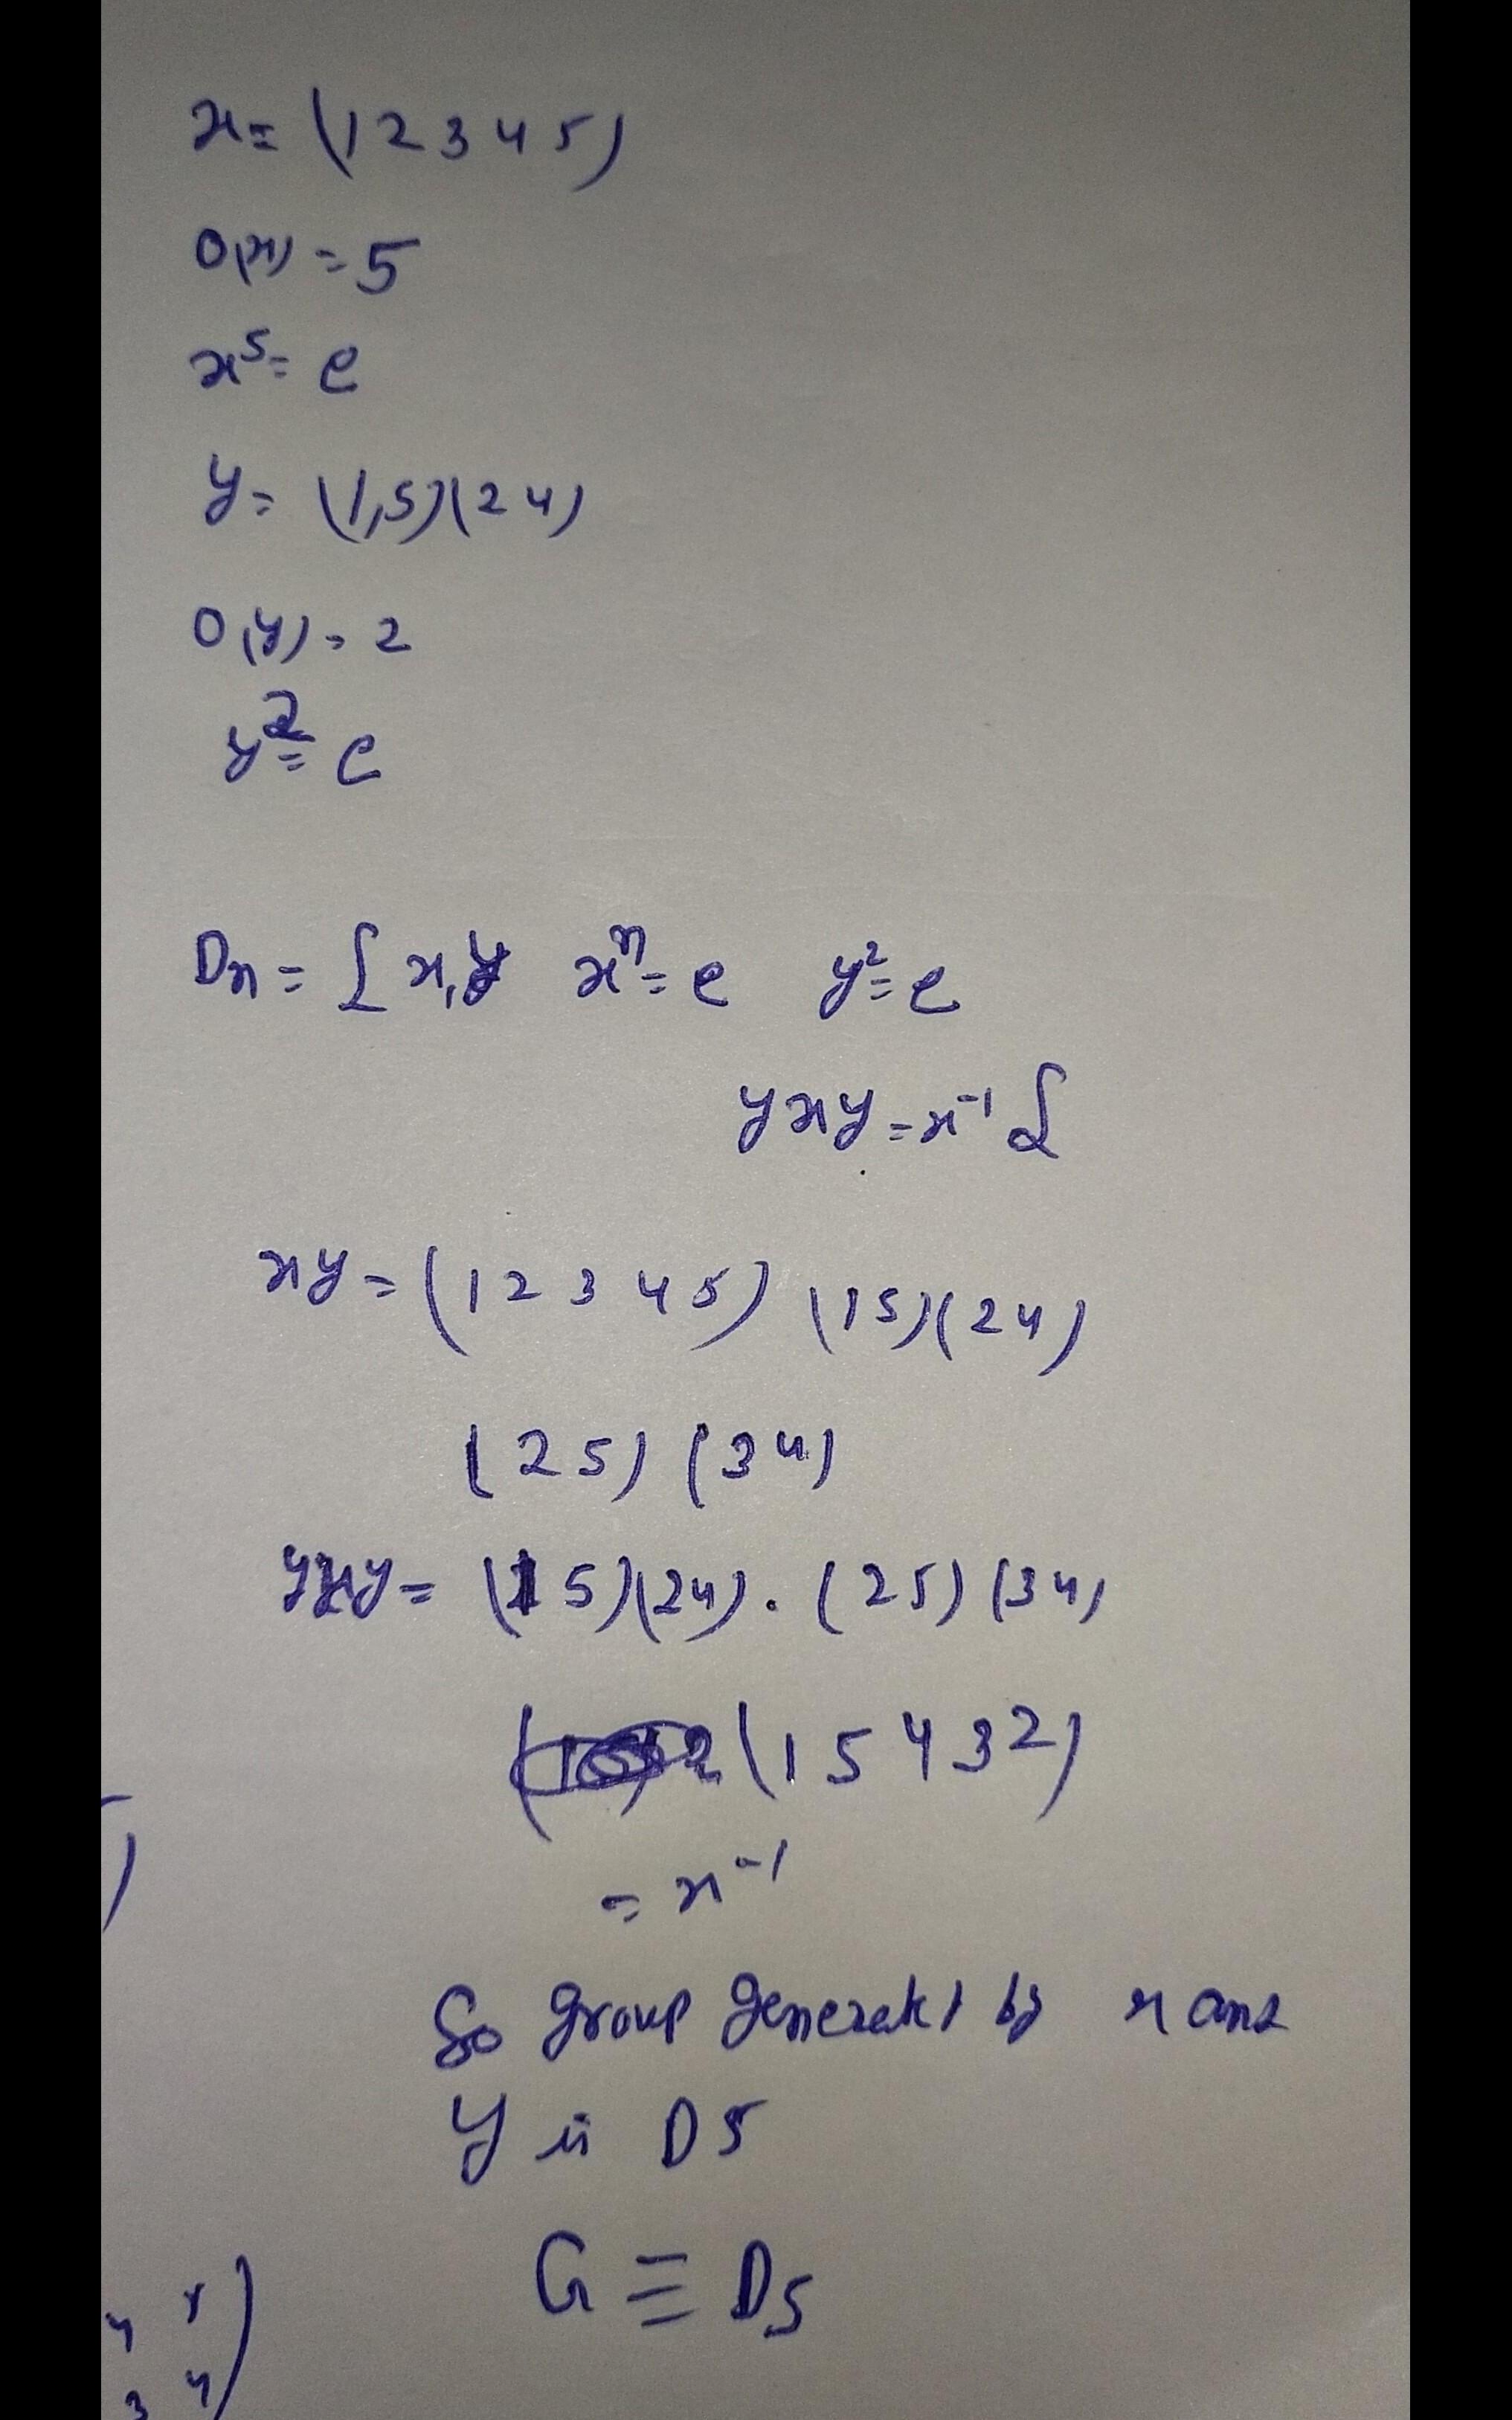 x = (1 2 3 4 5)
O(x) = 5
x⁵ = e
y = (1,5)(2 4)
O(y) = 2
y² = e
Dn = { x, y xⁿ = e y² = e
yxy = x⁻¹ }
xy = (1 2 3 4 5) (1 5)(2 4)
(2 5) (3 4)
yxy = (1 5)(2 4) . (2 5) (3 4)
(1 5 4 3 2)
= x⁻¹
So group generated by x and
y is D5
G ≡ D5